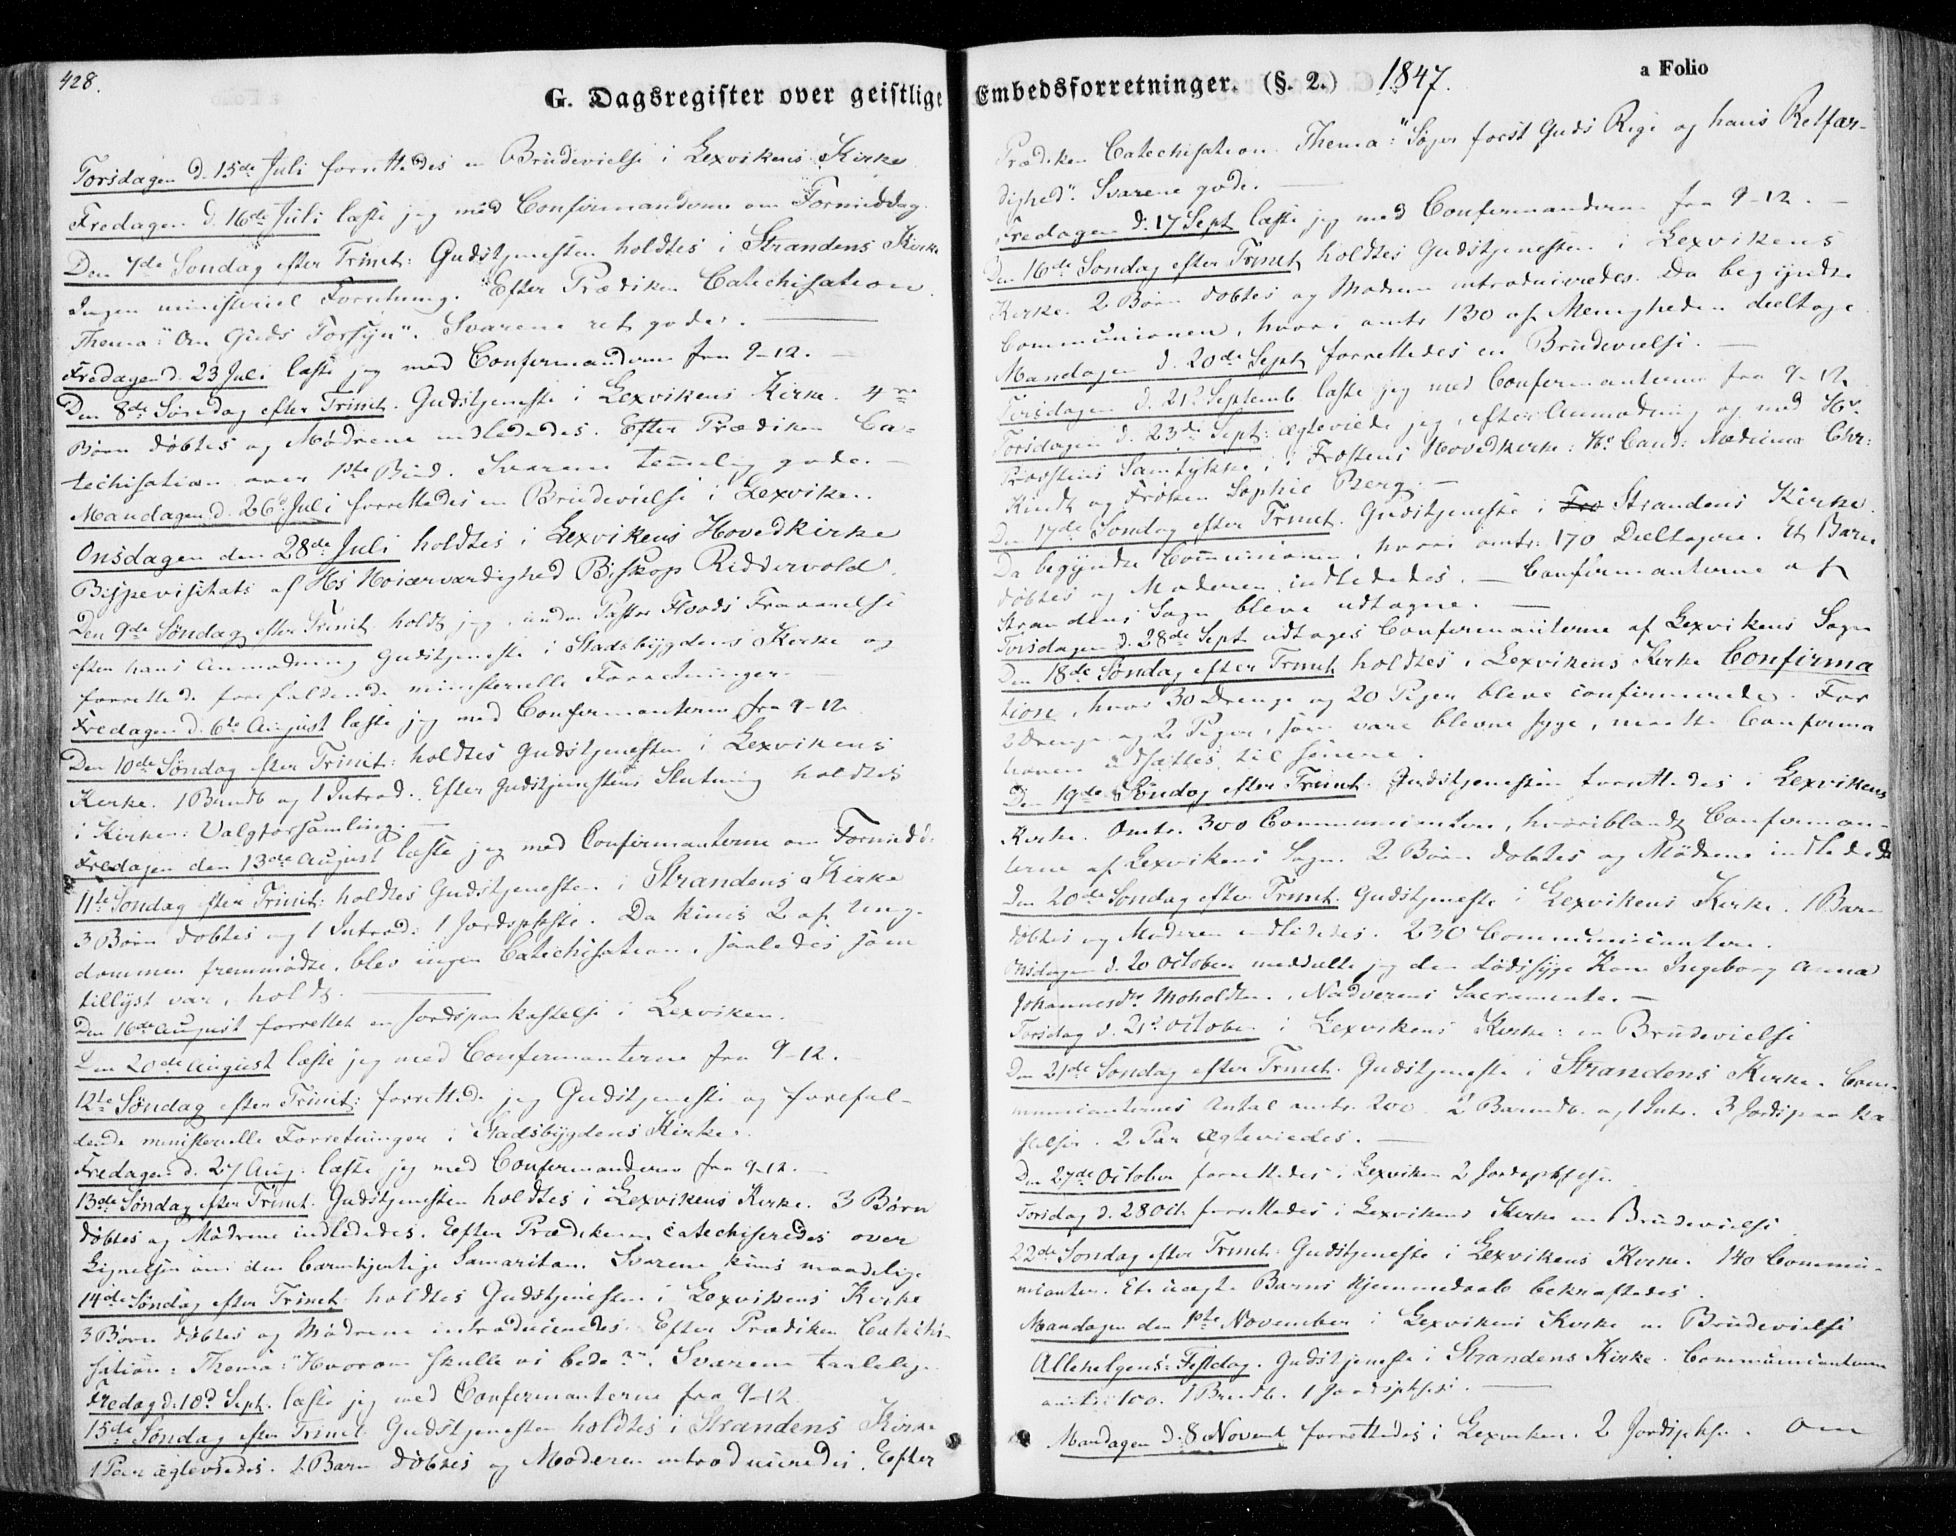 428.
G. Dagsregister over geistlige Embedsforretninger. (§. 2.) 1847.
a Folio
Torsdagen d. 15de Juli forrettedes en Brudevielse i Lexvikens Kirke
Fredagen d. 16de Juli læste jeg med Confirmanderne om Formiddag.
Den 7de Søndag efter Trinit: Gudstjenesten holdtes i Strandens Kirke
Ingen ministeriel Forretning. Efter Prædiken Catechisation.
Thema: "Om Guds Forsyn". Svarene ret gode. —
Fredagen d. 23 Juli læste jeg med Confirmanderne fra 9-12. —
Den 8de Søndag efter Trinit. Gudstjeneste i Lexvikens Kirke. 4re
Børn døbtes og Mødrene indlededes. Efter Prædiken Ca-
techisation over 1ste Bud. Svarene temmelig gode. —
Mandagen d. 26de Juli forrettedes en Brudevielse i Lexviken.
Onsdagen den 28de Juli holdtes i Lexvikens Hovedkirke
Bispevisitats af Hs Høiærværdighed Biskop Riddervold.
Den 9de Søndag efter Trinit holdt jeg, under Pastor Floods Fraværelse
efter hans Anmodning Gudstjeneste i Stadsbygdens Kirke og
forrettede forefaldende ministerielle Forretninger. —
Fredagen d. 6te August læste jeg med Confirmanterne fra 9-12
Den 10de Søndag efter Trinit: holdtes Gudstjenesten i Lexvikens
Kirke. 1 Barndb og 1 Introd. Efter Gudstjenestens Slutning holdtes
i Kirken: Valgforsamling. —
Fredagen den 13de August læste jeg med Confirmanterne om Formidd.
11te Søndag efter Trinit: holdtes Gudstjenesten i Strandens Kirke
3 Børn døbtes og 1 Introd: 1 Jordspkste. Da kuns 2 af Ung-
dommen fremmødte, blev ingen Catechisation, saaledes som
tillyst var, holdt. —
Den 16de August forrettet en Jordspaakastelse i Lexviken.
Den 20de August læste jeg med Confirmanterne fra 9-12. —
12te Søndag efter Trinit: forrettede jeg Gudstjeneste og forefal-
dende ministerielle Forretninger i Stadsbygdens Kirke.
Fredagen d. 27 Aug. læste jeg med Confirmanderne fra 9-12. —
13de Søndag efter Trinit. Gudstjenesten holdtes i Lexvikens Kirke. 3 Børn
døbtes og Mødrene indlededes. Efter Prædikenen catechiseredes over
Lignelsen om den barmhjertige Samaritan. Svarene kuns maadelige
14de Søndag efter Trinit. holdtes Gudstjenesten i Lexvikens Kirke
3 Børn døbtes og Mødrene introduceredes. Efter Prædiken Catechi-
sation: Thema: "Hvorom skulle vi bede?". Svarene taalelige
Fredag d. 10d Sept. læste jeg med Confirmanterne fra 9-12.
15de Søndag efter Trinit. Gudstjenesten holdtes i Strandens Kirke
1 Par ægteviedes. 1 Barn døbtes og Moderen introduceredes. Efter
Prædiken Catechisation. Thema: "Søger først Guds Rige og hans Retfær-
dighed". Svarene gode. —
Fredagen d. 17 Sept læste jeg med Confirmanderne fra 9-12. —
Den 16de Søndag efter Trinit holdtes Gudstjenesten i Lexvikens
Kirke. 2 Børn døbtes og Mødrene introduceredes. Da begyndte
Communionen, hvori omtr 130 af Menigheden deeltoge
Mandagen d. 20de Sept forrettedes en Brudevielse. —
Tirsdagen d. 21d Septemb læste jeg med Confirmanterne fra 9-12
Torsdagen d. 23de Sept: ægteviede jeg, efter Anmodning og med Hr.
Provstens Samtykke, i Frostens Hovedkirke: Hr Cand: Medicinæ Chr:
Kindt og Frøken Sophie Berg. —
Den 17de Søndag efter Trinit. Gudstjeneste i Fro Strandens Kirke.
Da begyndte Communionen, hvori omtr. 170 Deeltagere. Et Barn
døbtes og Moderen indlededes. — Confirmanterne af
Strandens Sogn bleve udtagne. —
Tirsdagen d. 28de Sept udtoges Confirmanterne af Lexvikens Sogn
Den 18de Søndag efter Trinit holdtes i Lexvikens Kirke Confirma
tion, hvor 30 Drenge og 20 Piger bleve confirmerede. For
2 Drenge og 2 Piger, som vare blevne syge, maatte Confirma
tionen udsættes til senere.
Den 19de Søndag efter Trinit. Gudstjenesten forrettedes i Lexvikens
Kirke. Omtr. 300 Communicantere, hvoriblandt Confirman-
terne af Lexvikens Sogn. 2 Børn døbtes og Mødrene indlededs
Den 20de Søndag efter Trinit. Gudstjeneste i Lexvikens Kirke. 1 Barn
døbtes og Moderen indlededes. 230 Communicantere.
Onsdagen d. 20 October meddeelte jeg den dødssyge Kone Ingeborg Anna
Johannesdtr Moholdten, Nadverens Sacramente. —
Torsdag d. 21d October i Lexvikens Kirke: en Brudevielse
Den 21de Søndag efter Trinit. Gudstjeneste i Strandens Kirke. Com-
municanternes Antal omtr. 200. 2 Barndb. og 1 Intr. 3 Jordspaaka
stelser. 2 Par ægteviedes. —
Den 27de October forrettedes i Lexviken 2 Jordspkstelse.
Torsdag d. 28 Oct. forrettedes i Lexvikens Kirke en Brudevielse
22de Søndag efter Trinit. Gudstjeneste i Lexvikens Kirke. 140 Commu-
nicanter. Et uægte Barns Hjemmedaab bekræftedes.
Mandagen den 1ste November i Lexvikens Kirke en Brudevielse
Allehelgens-Festdag. Gudstjeneste i Strandens Kirke. Communicanterne
omtr: 100. 1 Barndb. 1 Jordspkse. —
Mandagen d. 8 Novemb forrettedes i Lexviken. 2 Jordspkse. Om